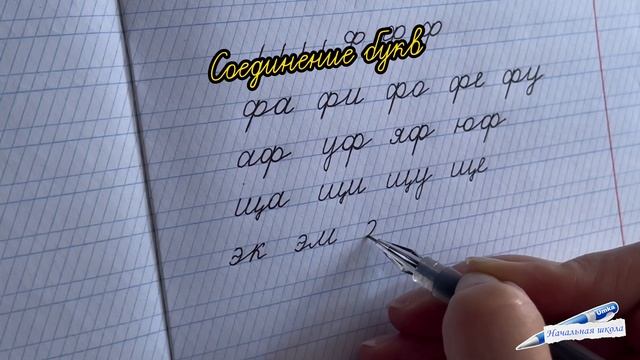 ф ф ф
Соединение букв
фа фи фо фе фу
аф уф яф юф
ща щи щу ще
эк эм
Утка
Начальная школа